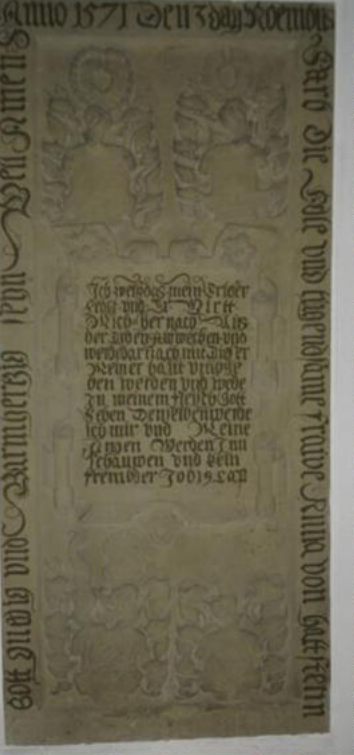 Anno 1571 Den 3 dag Novembris
Starb Die Edle und tugendsame Frawe Anna von
Gott gnedig und Barmhertzig sehn Well Amen
Ich weis das mein Erlöser
Lebt und Er Wirtt
Mich hernach Aus
der Erden Auwecken und
werde darnach mit Diser
Meiner haut umbge
ben werden und werde
In meinem fleisch Gott
Sehen Denselben werde
ich mir und Meine
Augen Werden Inn
schauwen und kein
frembder Jobis CAP